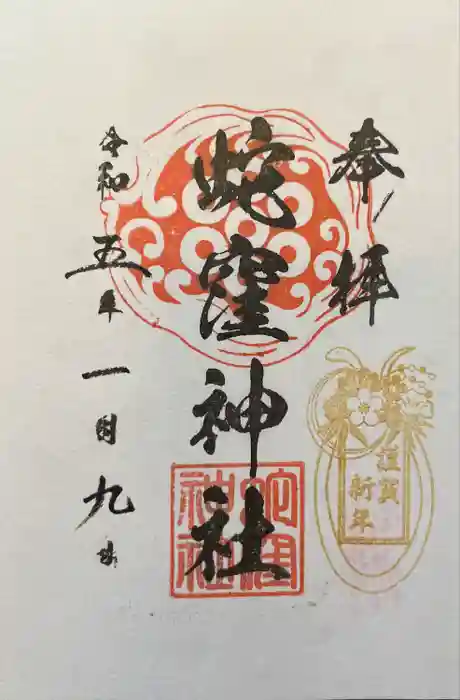 奉拝
謹賀
新年
蛇窪神社
蛇窪
神社
令和五年一月九日